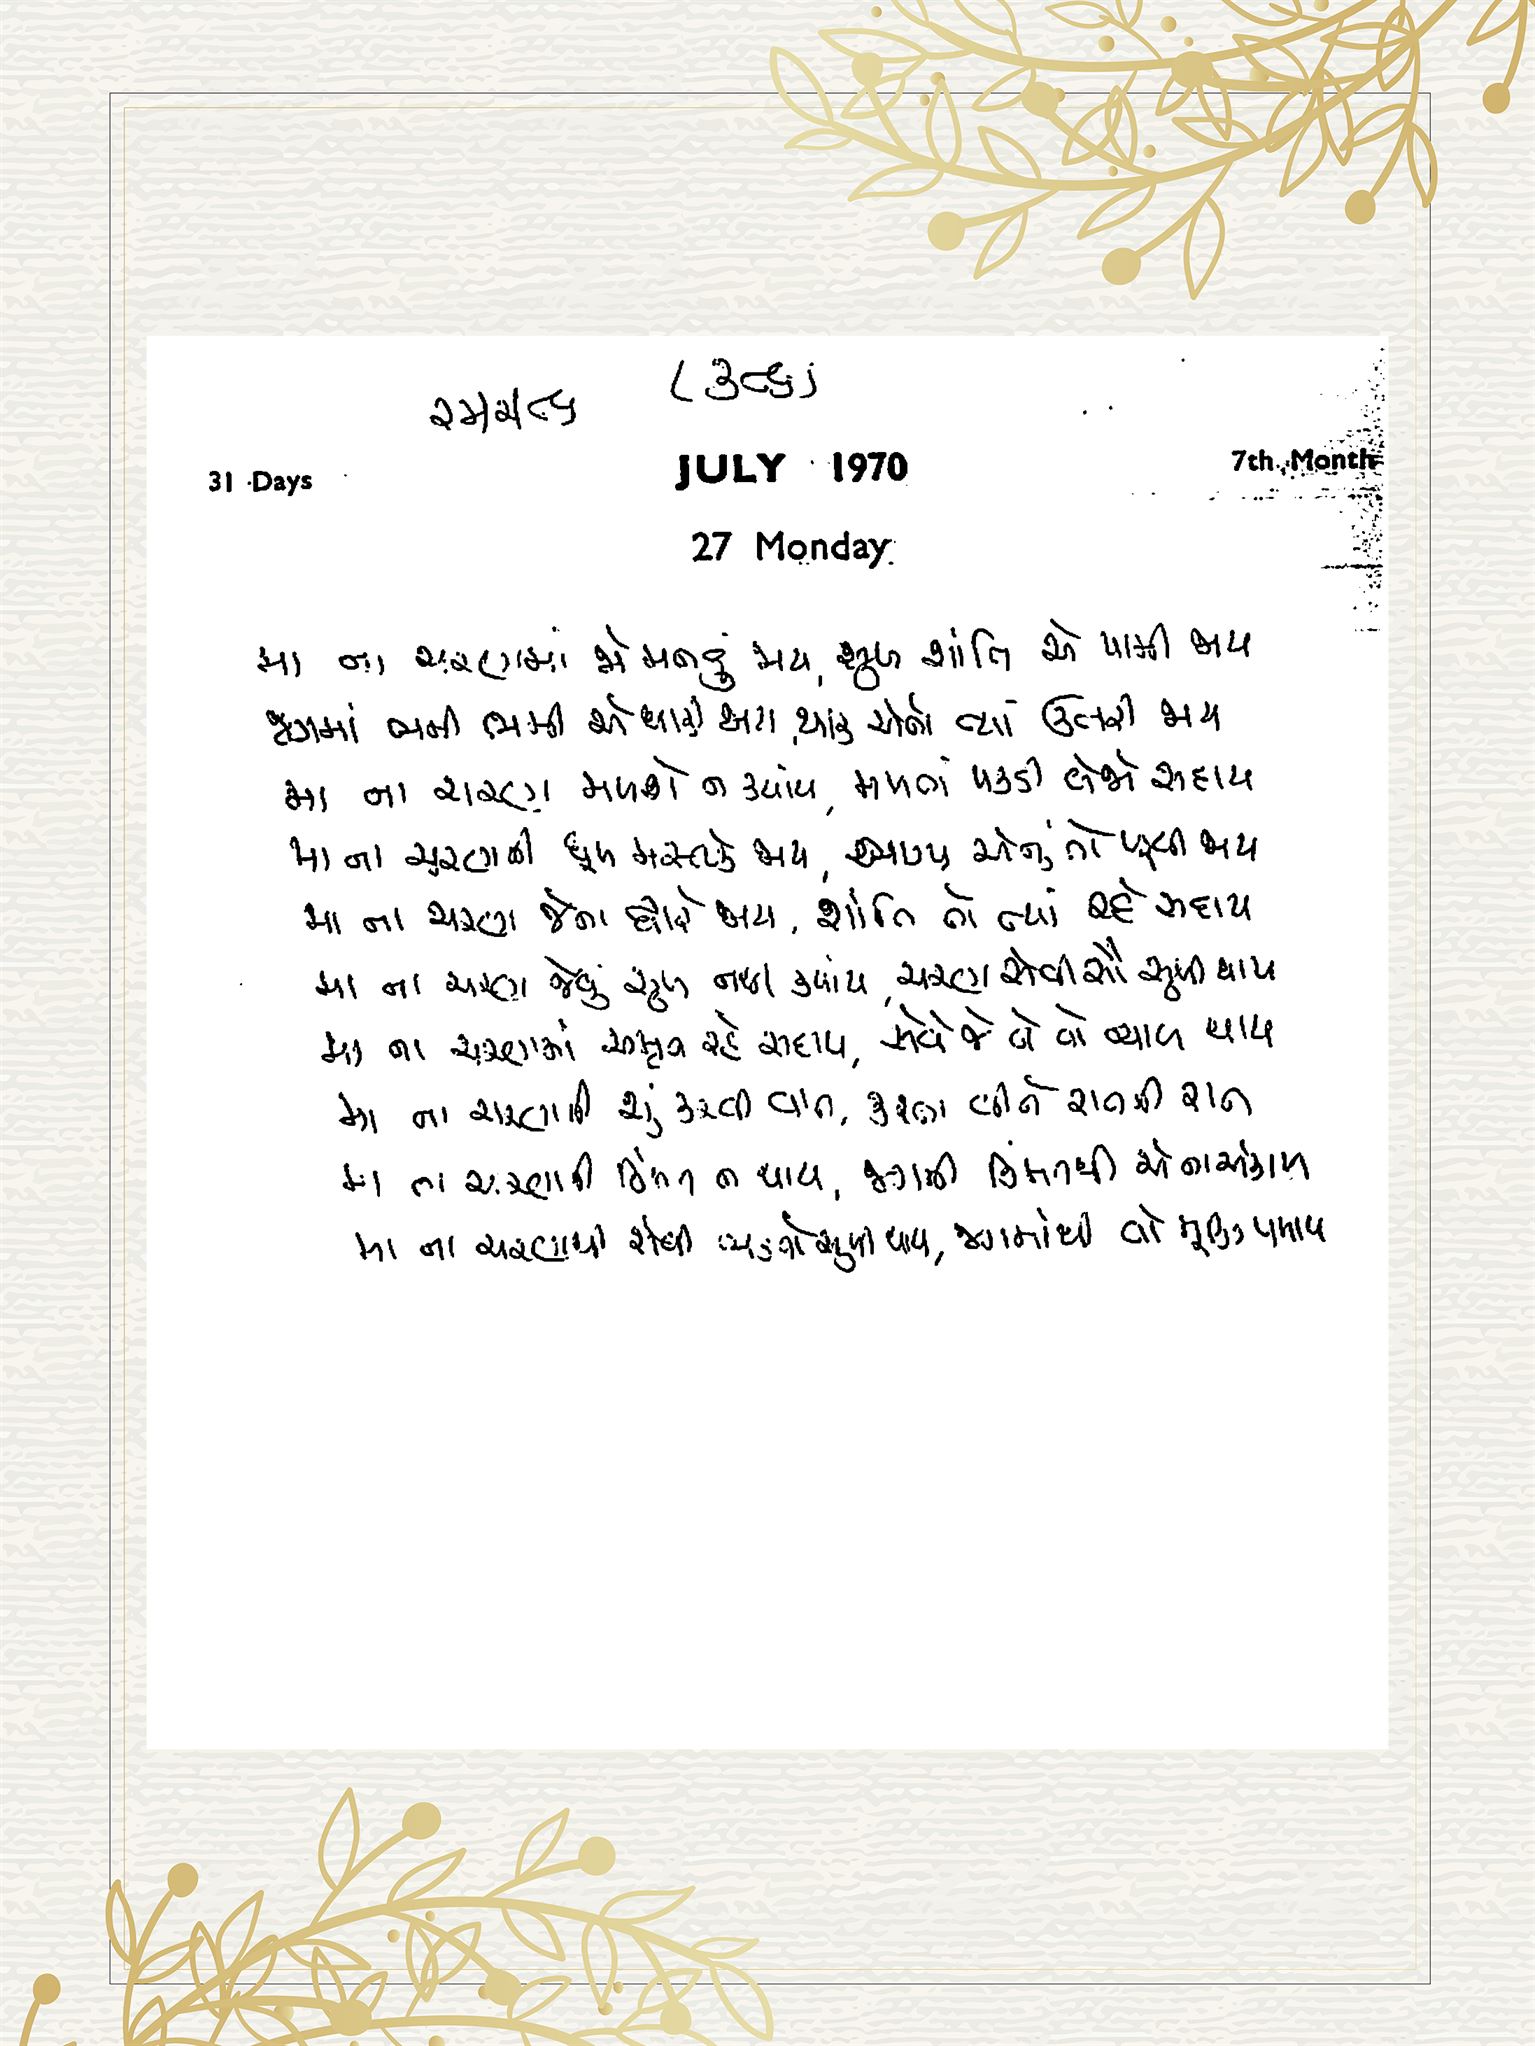 31 Days
JULY 1970
7th Month
27 Monday
મા ના ચરણમાં જો મનડું જાય, સુખ શાંતિ એ પામી જાય
જગમાં ભમી ભમી એ થાકી જાય, થાક એનો ત્યાં ઉતરી જાય
મા ના ચરણ મળશે ન ક્યાંય, મળતાં પકડી લેજો સદાય
મા ના ચરણની ધૂળ મસ્તકે જાય, એનું તો ખૂલી જાય
મા ના ચરણ જેના જાય, શાંતિ તો ત્યાં રહે સદાય
મા ના ચરણ જેવું સુખ નથી ક્યાંય, ચરણ સેવી સૌ સુખી થાય
મા ના ચરણમાં અમૃત રહે સદાય, સેવે જે તે તો ન્યાલ થાય
મા ના ચરણની શું કરવી વાત, કરતા વીતે રાતની રાત
મા ના ચરણની કિંમત ન થાય, જગની કિંમતથી એ ના અંકાય
મા ના ચરણથી સેવી ભક્તો સુખી થાય, જગમાંથી તો મુક્તિ પમાય